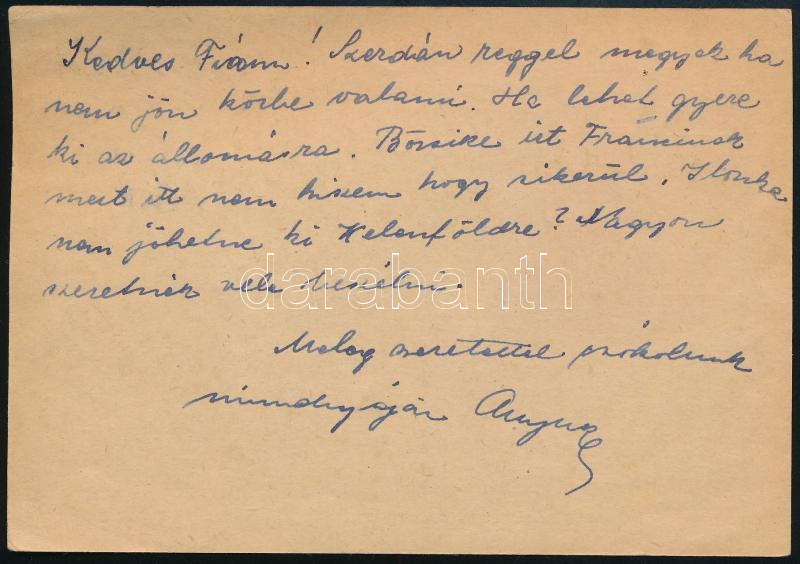 Kedves Fiam! Szerdán reggel megyek ha
nem jön közbe valami. Ha lehet gyere
ki az állomásra. Börsike írt Francinak
mert itt nem hiszem hogy sikerül. Ilonka
nem jöhetne ki Kelenföldre? Nagyon
szeretnék vele beszélni.
darabanth
Meleg szeretettel csókolunk
mindnyájan Anyuka